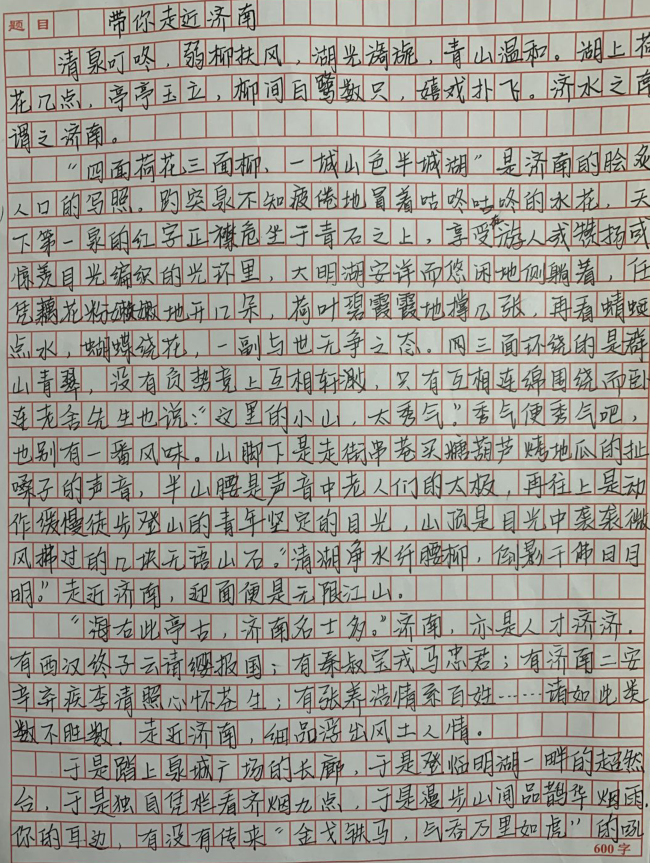 题目 带你走近济南
清泉叮咚，弱柳扶风，湖光旖旎，青山温和。湖上荷
花几点，亭亭玉立，柳间白鹭数只，嬉戏扑飞。济水之南
谓之济南。
“四面荷花三面柳，一城山色半城湖”是济南的脍炙
人口的写照。趵突泉不知疲倦地冒着咕咚咕咚的水花，天
下第一泉的红字正襟危坐于青石之上，享受着游人或赞扬或
惊羡目光编织的光环里，大明湖安详而悠闲地侧躺着，任
凭藕花粉嫩嫩地开几朵，荷叶碧霞霞地撑几张，再看蜻蜓
点水，蝴蝶绕花，一副与世无争之态。四三面环绕的是群
山青翠，没有负势竞上互相轩邈，只有互相连绵围绕而卧
连老舍先生也说：“这里的小山，太秀气。”秀气便秀气吧，
也别有一番风味。山脚下是走街串巷买糖葫芦烤地瓜的扯
嗓子的声音，半山腰是声音中老人们的太极，再往上是动
作缓慢徒步登山的青年坚定的目光，山顶是目光中袭袭微
风拂过的几块无语山石。“清湖净水纤腰柳，倒影千佛日月
明。”走近济南，迎面便是无限江山。
“海右此亭古，济南名士多。”济南，亦是人才济济．
有西汉终子云请缨报国；有秦叔宝戎马忠君；有济南二安
辛弃疾李清照心怀苍生；有张养浩情系百姓……诸如此类
数不胜数．走近济南，细品浮出风土人情。
于是踏上泉城广场的长廊，于是登临明湖一畔的超然
台，于是独自凭栏看齐烟九点，于是漫步山间品鹊华烟雨．
你的耳边，有没有传来“金戈铁马，气吞万里如虎”的吼
600字